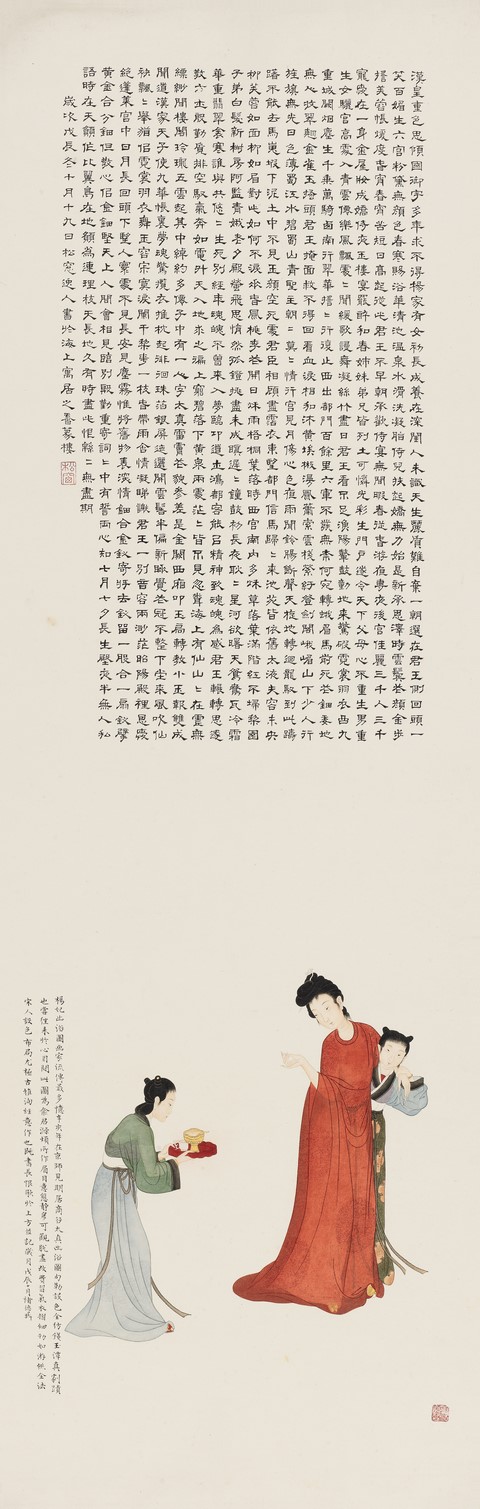 漢皇重色思傾國御宇多年求不得楊家有女初長成養在深閨人未識天生麗質難自棄一朝選在君王側回頭一
笑百媚生六宮粉黛無顏色春寒賜浴華清池溫泉水滑洗凝脂侍兒扶起嬌無力始是新承恩澤時雲鬢花顏金步
搖芙蓉帳暖度春宵春宵苦短日高起從此君王不早朝承歡侍宴無閒暇春從春游夜專夜後宮佳麗三千人三千
寵愛在一身金屋妝成嬌侍夜玉樓宴罷醉和春姊妹弟兄皆列土可憐光彩生門戶遂令天下父母心不重生男重
生女驪宮高處入青雲僊樂風飄處々聞緩歌謾舞凝絲竹盡日君王看不足漁陽鼙鼓動地來驚破霓裳羽衣曲九
重城闕煙塵生千乘萬騎西南行翠華搖々行復止西出都門百餘里六軍不發無奈何宛轉蛾眉馬前死花鈿委地
無人收翠翹金雀玉搔頭君王掩面救不得回看血淚相和流黃埃散漫風蕭索雲棧縈紆登劍閣峨嵋山下少人行
旌旗無光日色薄蜀江水碧蜀山青聖主朝々莫々情行宮見月傷心色夜雨聞鈴腸斷聲天旋地轉迴龍馭到此躊
躇不能去馬嵬坡下泥土中不見玉顏空死處君臣相顧盡霑衣東望都門信馬歸々來池苑皆依舊太液芙蓉未央
柳芙蓉如面柳如眉對此如何不淚垂春風桃李花開日秋雨梧桐葉落時西宮南內多秋草落葉滿階紅不掃梨園
子弟白髮新椒房阿監青娥老夕殿螢飛思悄然孤鐙挑盡未成眠遲々鐘鼓初長夜耿々星河欲曙天鴛鴦瓦冷霜
華重翡翠衾寒誰與共悠々生死別經年魂魄不曾來入夢臨邛道士鴻都客能以精神致魂魄為感君王輾轉思遂
教方士殷勤覓排空馭氣奔如電升天入地求之遍上窮碧落下黃泉兩處茫々皆不見忽聞海上有仙山々在虛無
縹緲間樓閣玲瓏五雲起其中綽約多僊子中有一人字太真雪膚花貌參差是金闕西廂叩玉扃轉教小玉報雙成
聞道漢家天子使九華帳裏夢魂驚攬衣推枕起徘徊珠箔銀屏迤邐開雲髻半偏新睡覺花冠不整下堂來風吹仙
袂飄々舉猶佀霓裳羽衣舞玉容寂寞淚闌干梨花一枝春帶雨含情凝睇謝君王一別音容兩渺茫昭陽殿裡恩愛
絕蓬萊宮中日月長回頭下望人寰處不見長安見塵霧惟將舊物表深情鈿合金釵寄將去釵留一股合一扇釵擘
黃金合分鈿但教心佀金鈿堅天上人間會相見臨別殷勤重寄詞々中有誓兩心知七月七夕長生殿夜半無人私
語時在天願作比翼鳥在地願為連理枝天長地久有時盡此恨緜々無盡期
歲次戊辰冬十月十九日松窗逸人書於海上寓居之香篆樓
楊妃出浴圖畫家流傳最多憶辛亥年在京師見明居商谷太真出浴圖勾勒設色全仿錢玉潭真劇蹟
也當往來於心目間此圖為余居士所作眉目意態靜秀可觀脫盡改費習氣衣褶細勁如游絲全法
宋人設色布局尤極古雅洵任意作也既書長恨歌於上方並記歲月戊辰十月